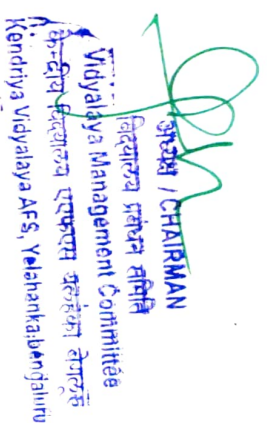 अध्यक्ष / CHAIRMAN
विद्यालय प्रबंधन समिति
Vidyalaya Management Committee
केन्द्रीय विद्यालय एएफएस येलहंका बेंगलूरु
Kendriya Vidyalaya AFS, Yelahanka, bengaluru